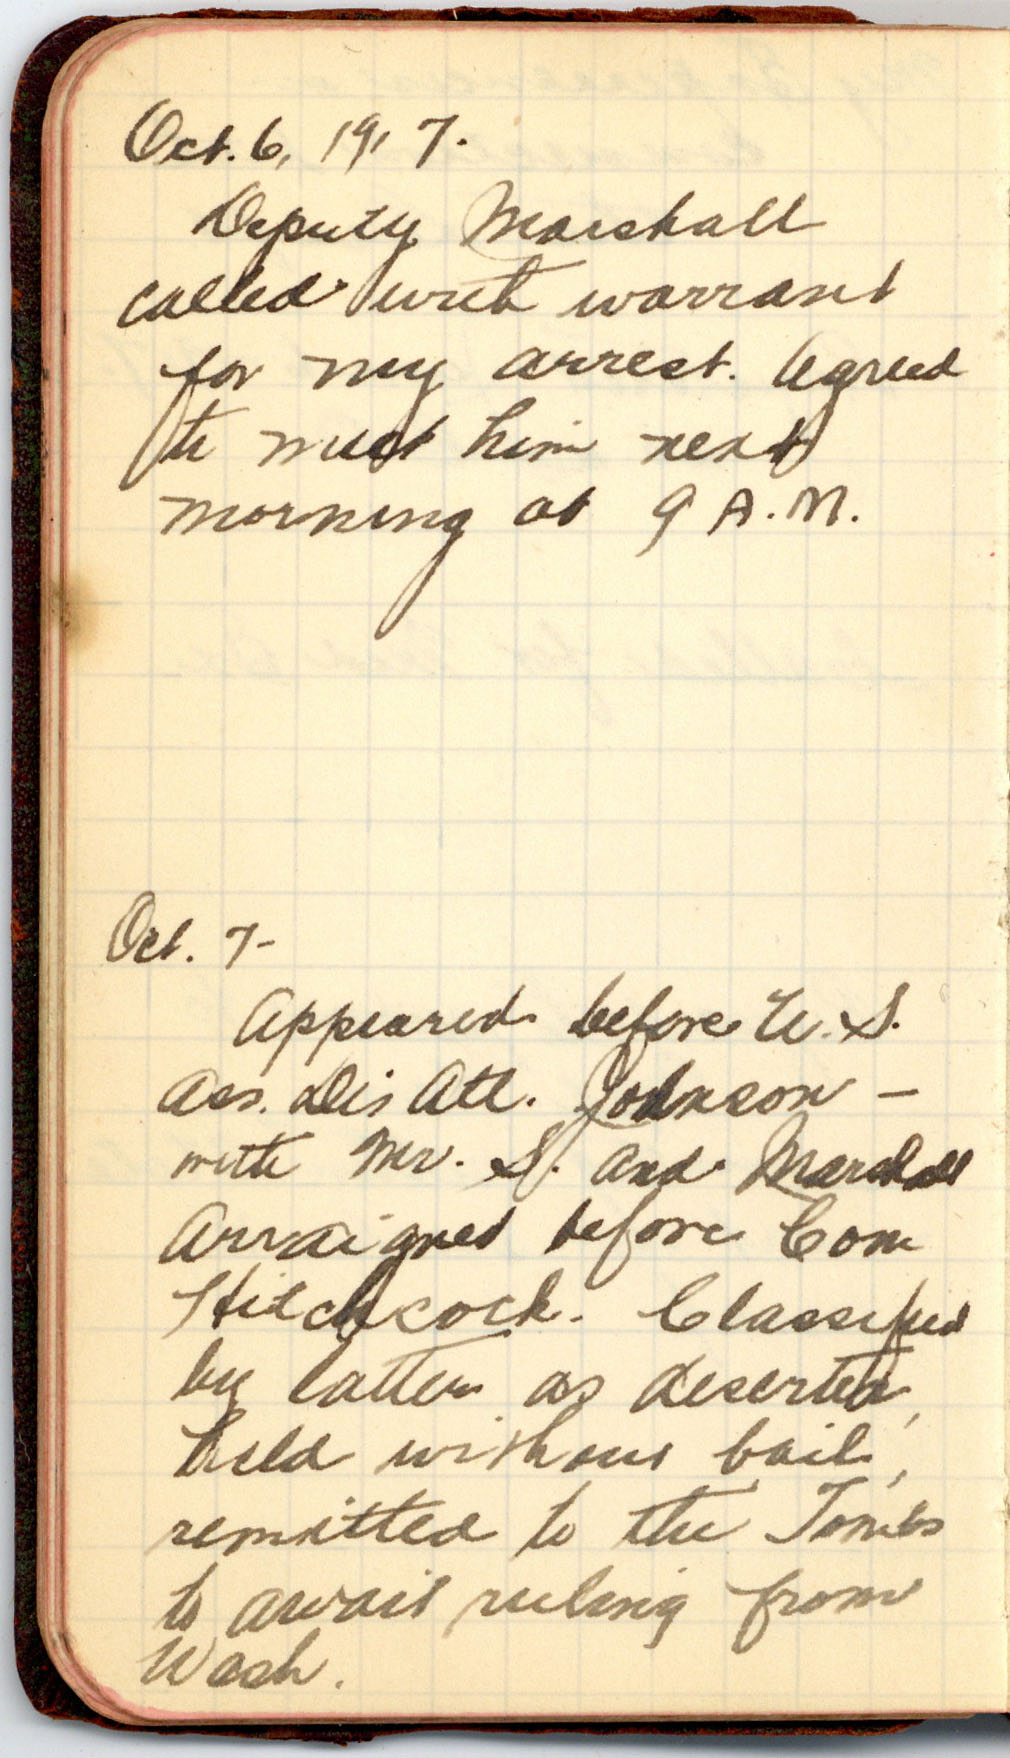 Oct. 6, 1917.
Deputy Marshall
called with warrant
for my arrest. Agreed
to meet him next
morning at 9 A.M.
Oct. 7-
Appeared before U.S.
Ass. Dis Att. Johnson –
with Mr. S. and Marshall
Arraigned before Com
Hitchcock. Classified
by latter as deserter,
held without bail,
remitted to the Tombs
to await ruling from
Wash.